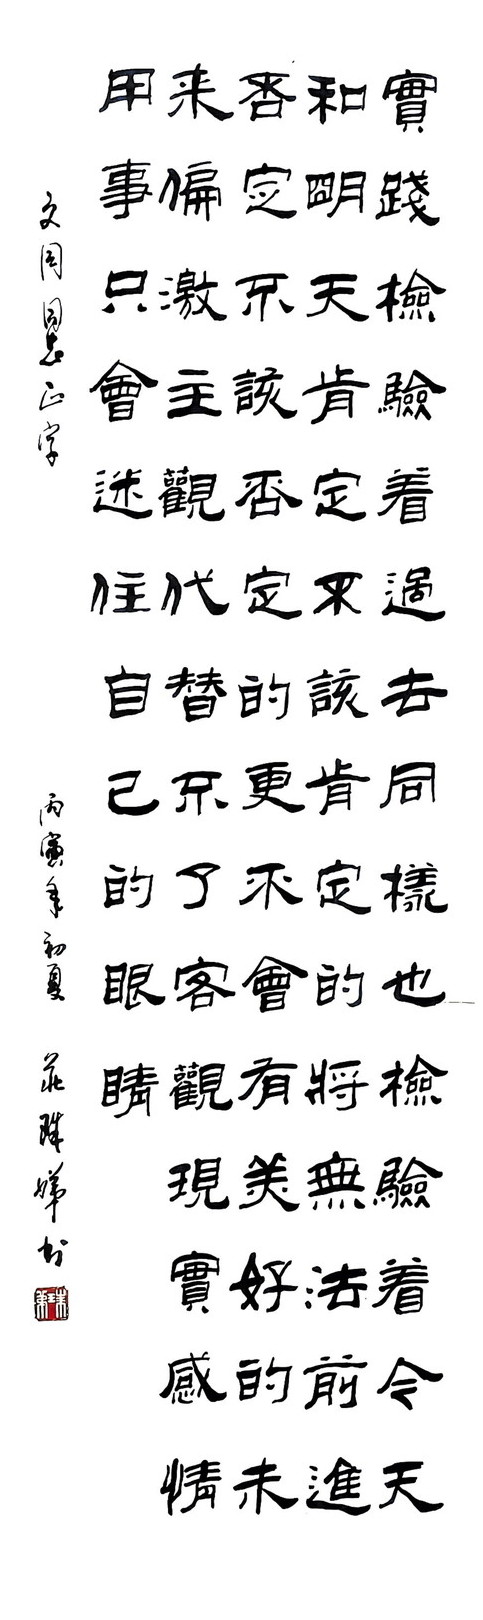 實踐檢驗着過去同樣也檢驗着令天
和朙天肯定不該肯定的將無法前進
否定不該否定的更不會有美好的未
来偏激主觀代替不了客觀現實感情
用事只會迷住自己的眼睛
文周同志正字 丙寅年初夏 莊珠娣书